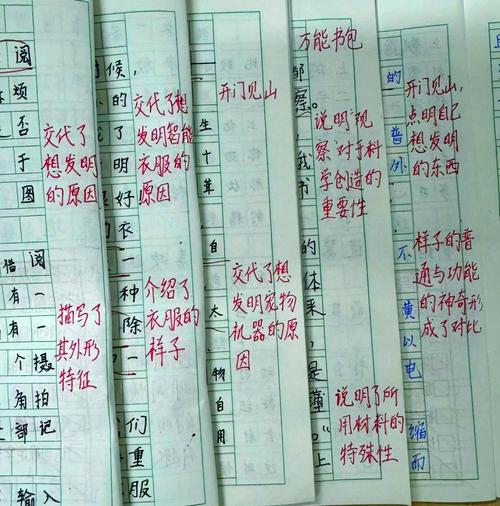 阅
烦
是否
于
图
借阅
有一
有一
个摄
角拍
部记
输入
交代了
想发明
的原因
描写了
其外形
特征
时候,
的
了
明
好
衣
种
除
一
们
重
服
交代了想
发明智能
衣服的
原因
介绍了
衣服的
样子
生
十
草
自
太
物
自
用
开门见山
交代了想
发明宠物
机器的原
因
万能书包
察。
我
书
的
体
来,
是
懂
。”
上
说明观
察对于科
学创造的
重要性
说明了所
用材料的
特殊性
的
普
外
不
黄
以
电
缩
而
开门见山,
点明自己
想发明
的东西
样子的普
通与功能
的神奇形
成了对比